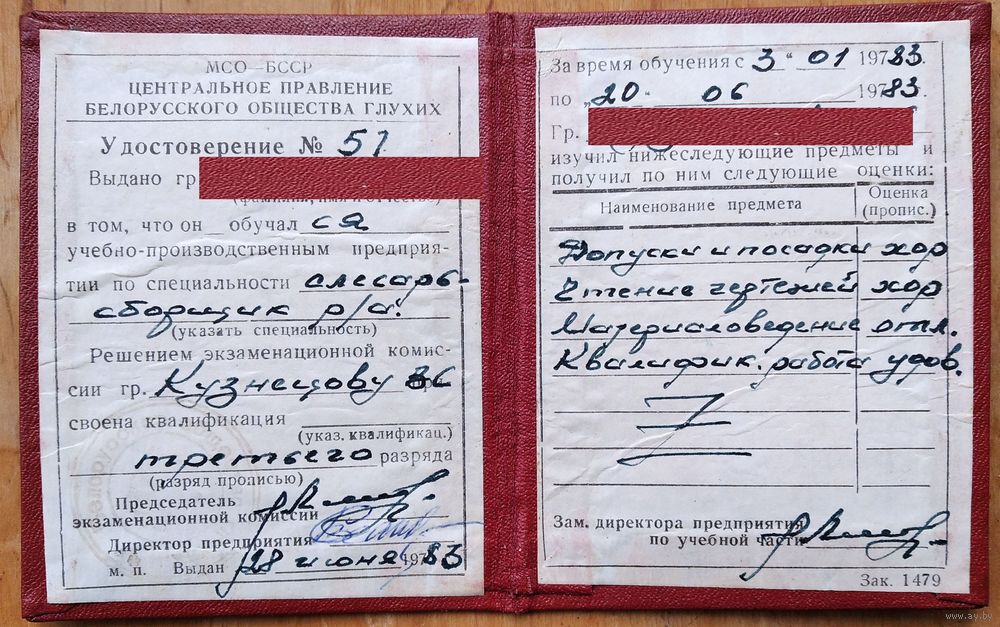 МСО—БССР
ЦЕНТРАЛЬНОЕ ПРАВЛЕНИЕ
БЕЛОРУССКОГО ОБЩЕСТВА ГЛУХИХ
Удостоверение № 51
Выдано гр
в том, что он обучал ся
учебно-производственным предприя-
тии по специальности слесарь-
сборщик р/а
(указать специальность)
Решением экзаменационной комис-
сии гр. Кузнецову
своена квалификация
(указ. квалификац.)
третьего разряда
(разряд прописью)
Председатель
экзаменационной комиссии
Директор предприятия
м. п. Выдан 28 июня 1983
За время обучения с 3 " 01 197 83.
по „20 06 197 83.
Гр.
изучил нижеследующие предметы и
получил по ним следующие оценки:
Наименование предмета Оценка
(пропис.)
Допуски и посадки хор
Чтение чертежей хор
Материаловедение отл.
Квалифик. работа удов.
Зам. директора предприятия
по учебной части
Зак. 1479
www.ay.by